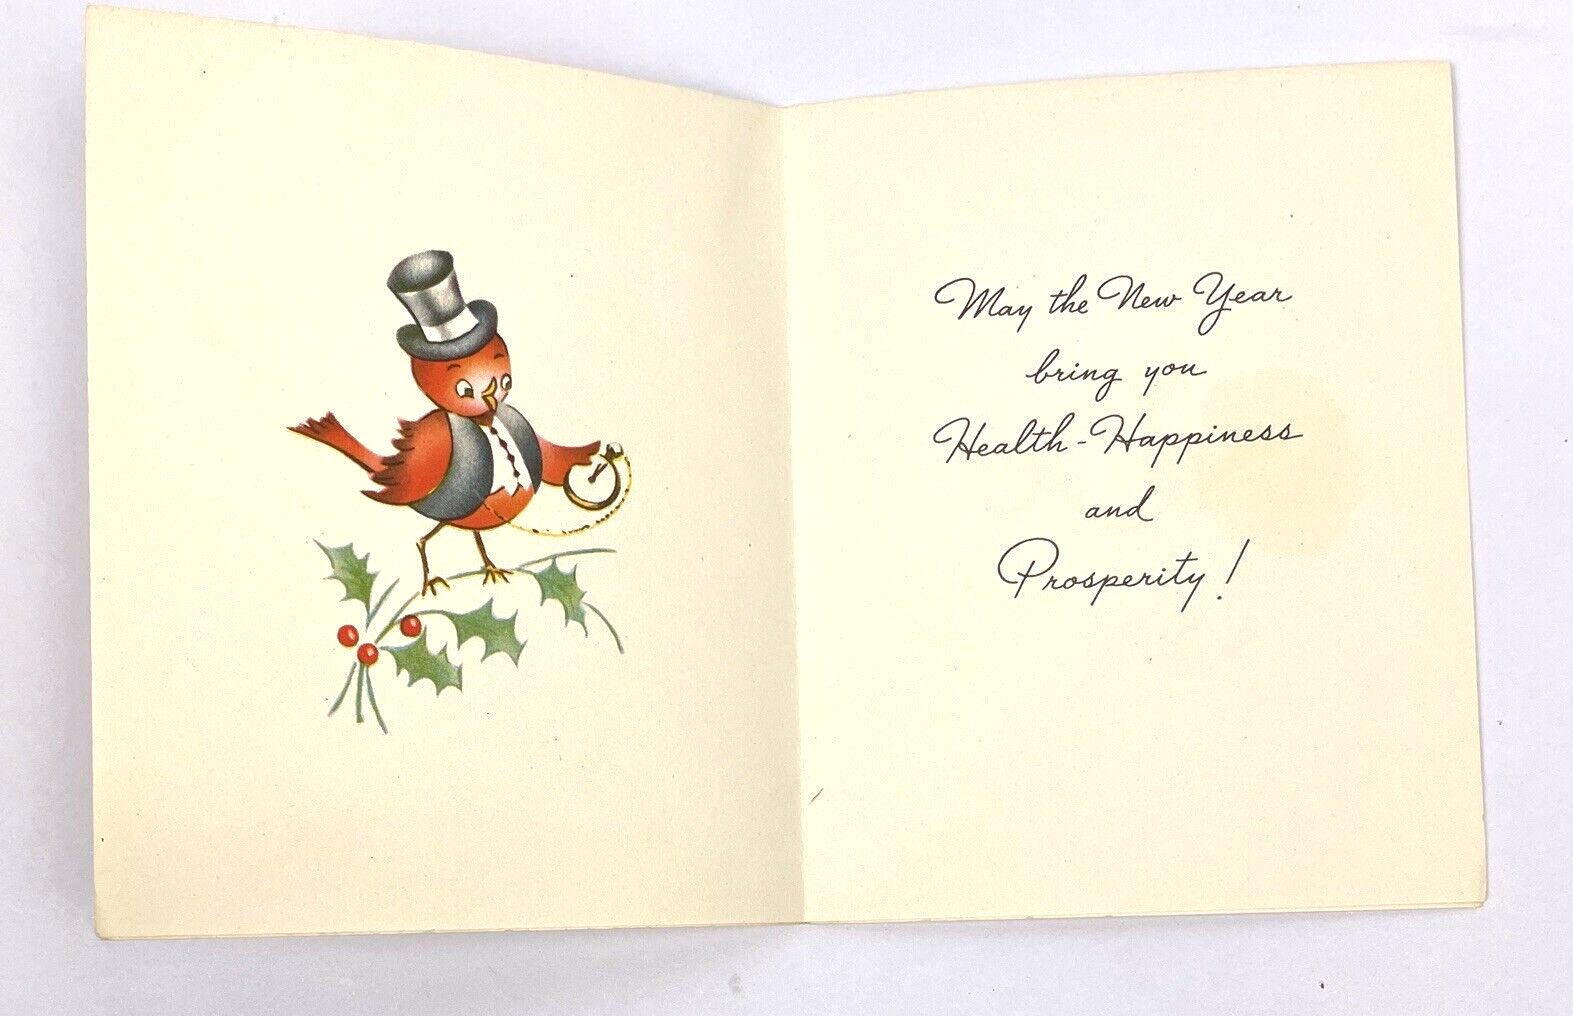 May the New Year
bring you
Health-Happiness
and
Prosperity!